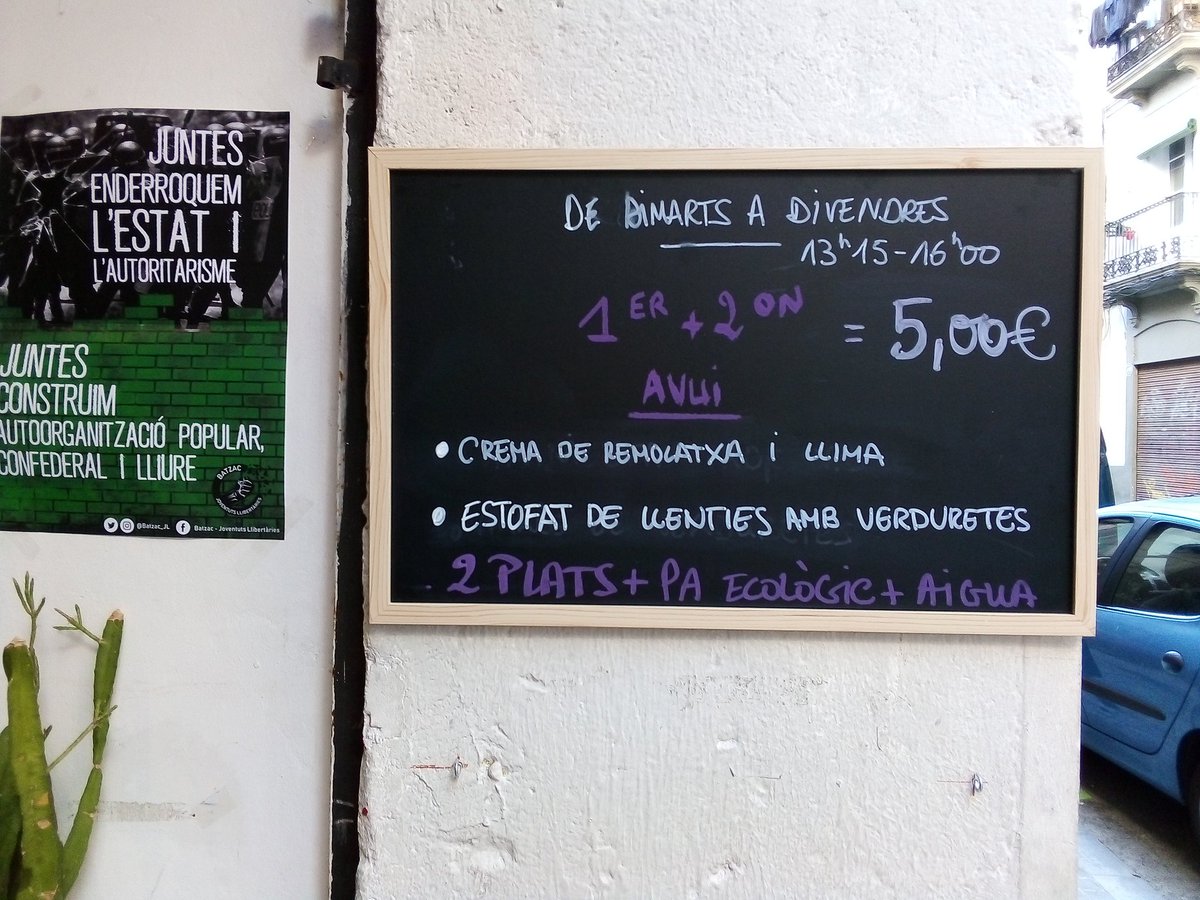 JUNTES
ENDERROQUEM
L'ESTAT I
L'AUTORITARISME
JUNTES
CONSTRUIM
AUTOORGANITZACIÓ POPULAR,
CONFEDERAL I LLIURE
BATZAC
JOVENTUTS LLIBERTÀRIES
@Batzac_JL
Batzac - Joventuts Llibertàries
DE DIMARTS A DIVENDRES
13h15-16h00
1ER + 2ON = 5,00€
AVUI
• CREMA DE REMOLATXA I LLIMA
• ESTOFAT DE LLENTIES AMB VERDURETES
2 PLATS + PA ECOLÒGIC + AIGUA